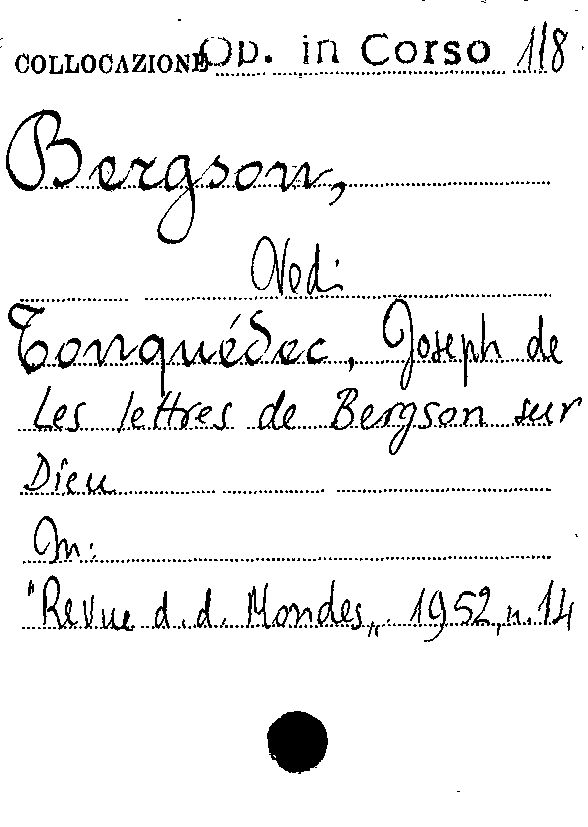 COLLOCAZIONE Op. in Corso 118
Bergson,
Vedi
Tonquédec, Joseph de
Les lettres de Bergson sur
Dieu
In:
"Revue d. d. Mondes„ 1952, n. 14